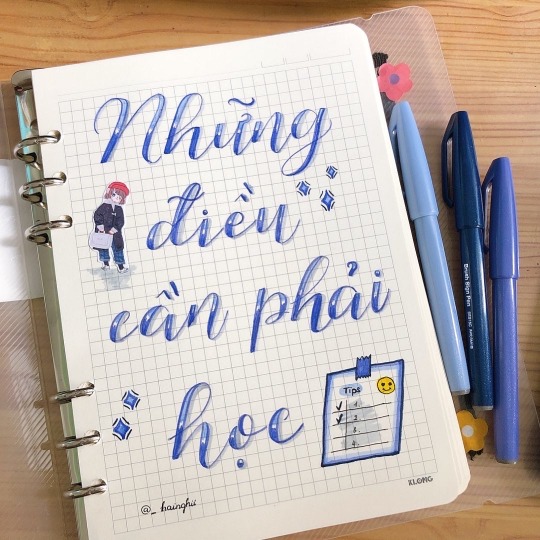 Những
điều
cần phải
học
Tips
1.
2
3.
4.
KLONG
Brush Sign Pen